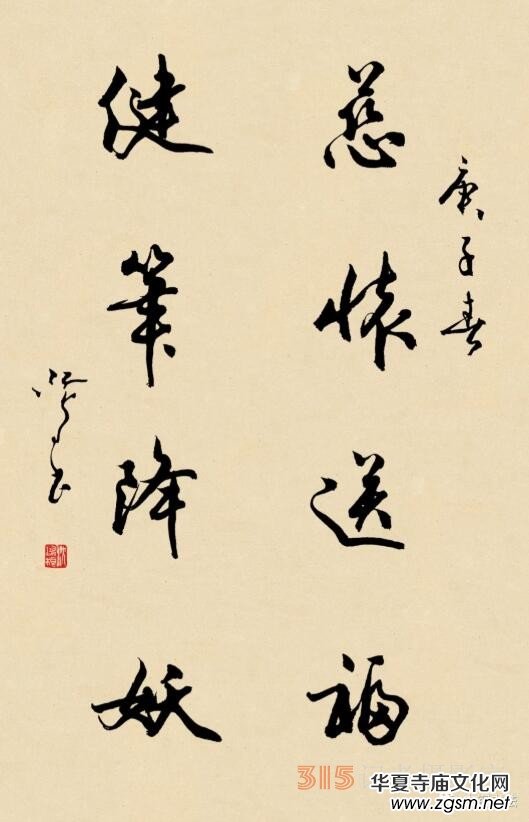 庚子春
慈懷送福
健筆降妖
315
华夏寺庙文化网
www.zgsm.net